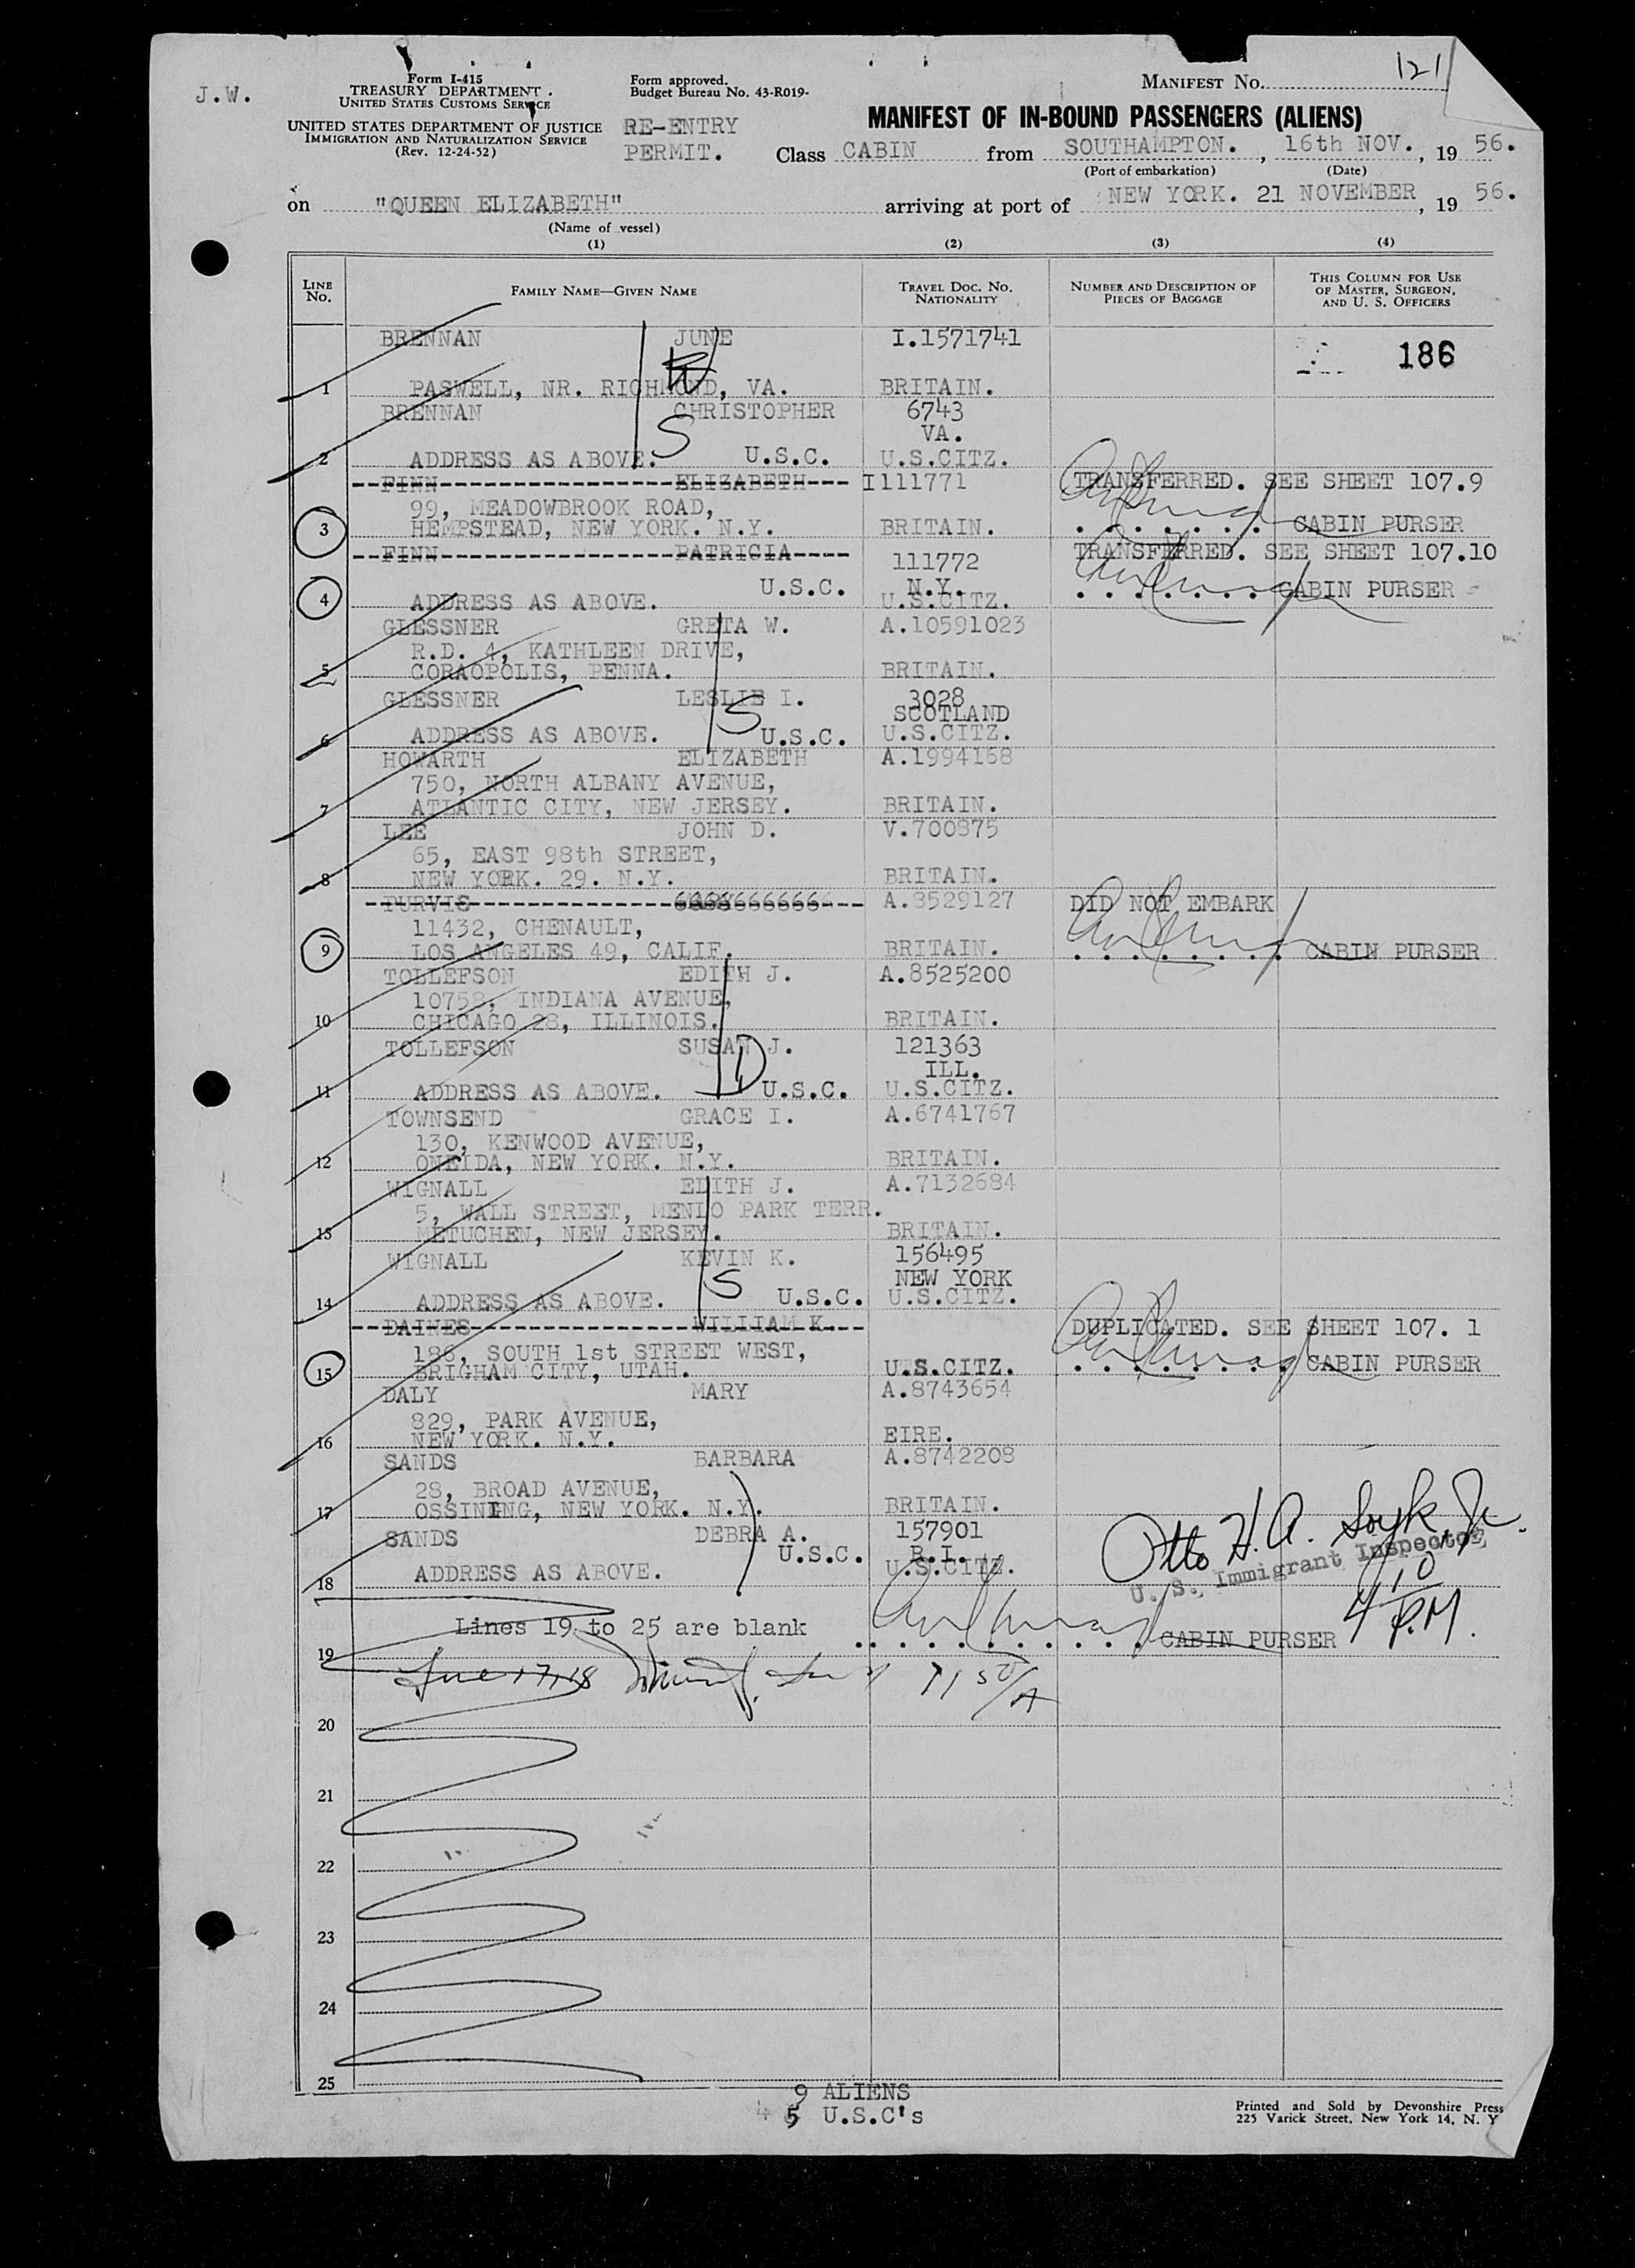 J.W.
Form I-415
TREASURY DEPARTMENT
UNITED STATES CUSTOMS SERVICE
UNITED STATES DEPARTMENT OF JUSTICE
IMMIGRATION AND NATURALIZATION SERVICE
(Rev. 12-24-52)
Form approved.
Budget Bureau No. 43-R019-
RE-ENTRY
PERMIT.
MANIFEST No. 121
MANIFEST OF IN-BOUND PASSENGERS (ALIENS)
Class CABIN from SOUTHAMPTON. , 16th NOV. , 19 56.
(Port of embarkation) (Date)
on "QUEEN ELIZABETH" arriving at port of NEW YORK. 21 NOVEMBER , 19 56.
(Name of vessel)
(1) (2) (3) (4)
LINE No. FAMILY NAME—GIVEN NAME TRAVEL DOC. No. NATIONALITY NUMBER AND DESCRIPTION OF PIECES OF BAGGAGE THIS COLUMN FOR USE OF MASTER, SURGEON, AND U. S. OFFICERS
BRENNAN JUNE I.1571741
186
1 PASWELL, NR. RICHMOND, VA. BRITAIN.
BRENNAN CHRISTOPHER 6743
S VA.
2 ADDRESS AS ABOVE. U.S.C. U.S.CITZ.
FINN ELIZABETH I111771 TRANSFERRED. SEE SHEET 107.9
99, MEADOWBROOK ROAD,
3 HEMPSTEAD, NEW YORK. N.Y. BRITAIN. CABIN PURSER
FINN PATRICIA 111772 TRANSFERRED. SEE SHEET 107.10
U.S.C. N.Y. CABIN PURSER
4 ADDRESS AS ABOVE. U.S.CITZ.
GLESSNER GRETA W. A.10591023
R.D. 4, KATHLEEN DRIVE,
5 CORAOPOLIS, PENNA. BRITAIN.
GLESSNER LESLIE I. 3028
S SCOTLAND
6 ADDRESS AS ABOVE. U.S.C. U.S.CITZ.
HOWARTH ELIZABETH A.1994168
750, NORTH ALBANY AVENUE,
7 ATLANTIC CITY, NEW JERSEY. BRITAIN.
LEE JOHN D. V.700875
65, EAST 98th STREET,
8 NEW YORK. 29. N.Y. BRITAIN.
PURVIS A.8529127 DID NOT EMBARK
11432, CHENAULT,
9 LOS ANGELES 49, CALIF. BRITAIN. CABIN PURSER
TOLLEFSON EDITH J. A.8525200
10758, INDIANA AVENUE,
10 CHICAGO 28, ILLINOIS. BRITAIN.
TOLLEFSON SUSAN J. 121363
D ILL.
11 ADDRESS AS ABOVE. U.S.C. U.S.CITZ.
TOWNSEND GRACE I. A.6741767
130, KENWOOD AVENUE,
12 ONEIDA, NEW YORK. N.Y. BRITAIN.
WIGNALL EDITH J. A.7132684
5, WALL STREET, MENLO PARK TERR.
13 METUCHEN, NEW JERSEY. BRITAIN.
WIGNALL KEVIN K. 156495
S NEW YORK
14 ADDRESS AS ABOVE. U.S.C. U.S.CITZ.
DAINES WILLIAM K. DUPLICATED. SEE SHEET 107. 1
186, SOUTH 1st STREET WEST,
15 BRIGHAM CITY, UTAH. U.S.CITZ. CABIN PURSER
DALY MARY A.8743654
829, PARK AVENUE,
16 NEW YORK. N.Y. EIRE.
SANDS BARBARA A.8742208
28, BROAD AVENUE,
17 OSSINING, NEW YORK. N.Y. BRITAIN.
SANDS DEBRA A. 157901
U.S.C. R.I.
18 ADDRESS AS ABOVE. U.S.CITZ.
Otto H. A. Soyk, Jr.
U. S. Immigrant Inspector
4 10 P.M.
Lines 19 to 25 are blank CABIN PURSER
19
20
21
22
23
24
25
9 ALIENS
5 U.S.C's
Printed and Sold by Devonshire Press
225 Varick Street, New York 14, N. Y